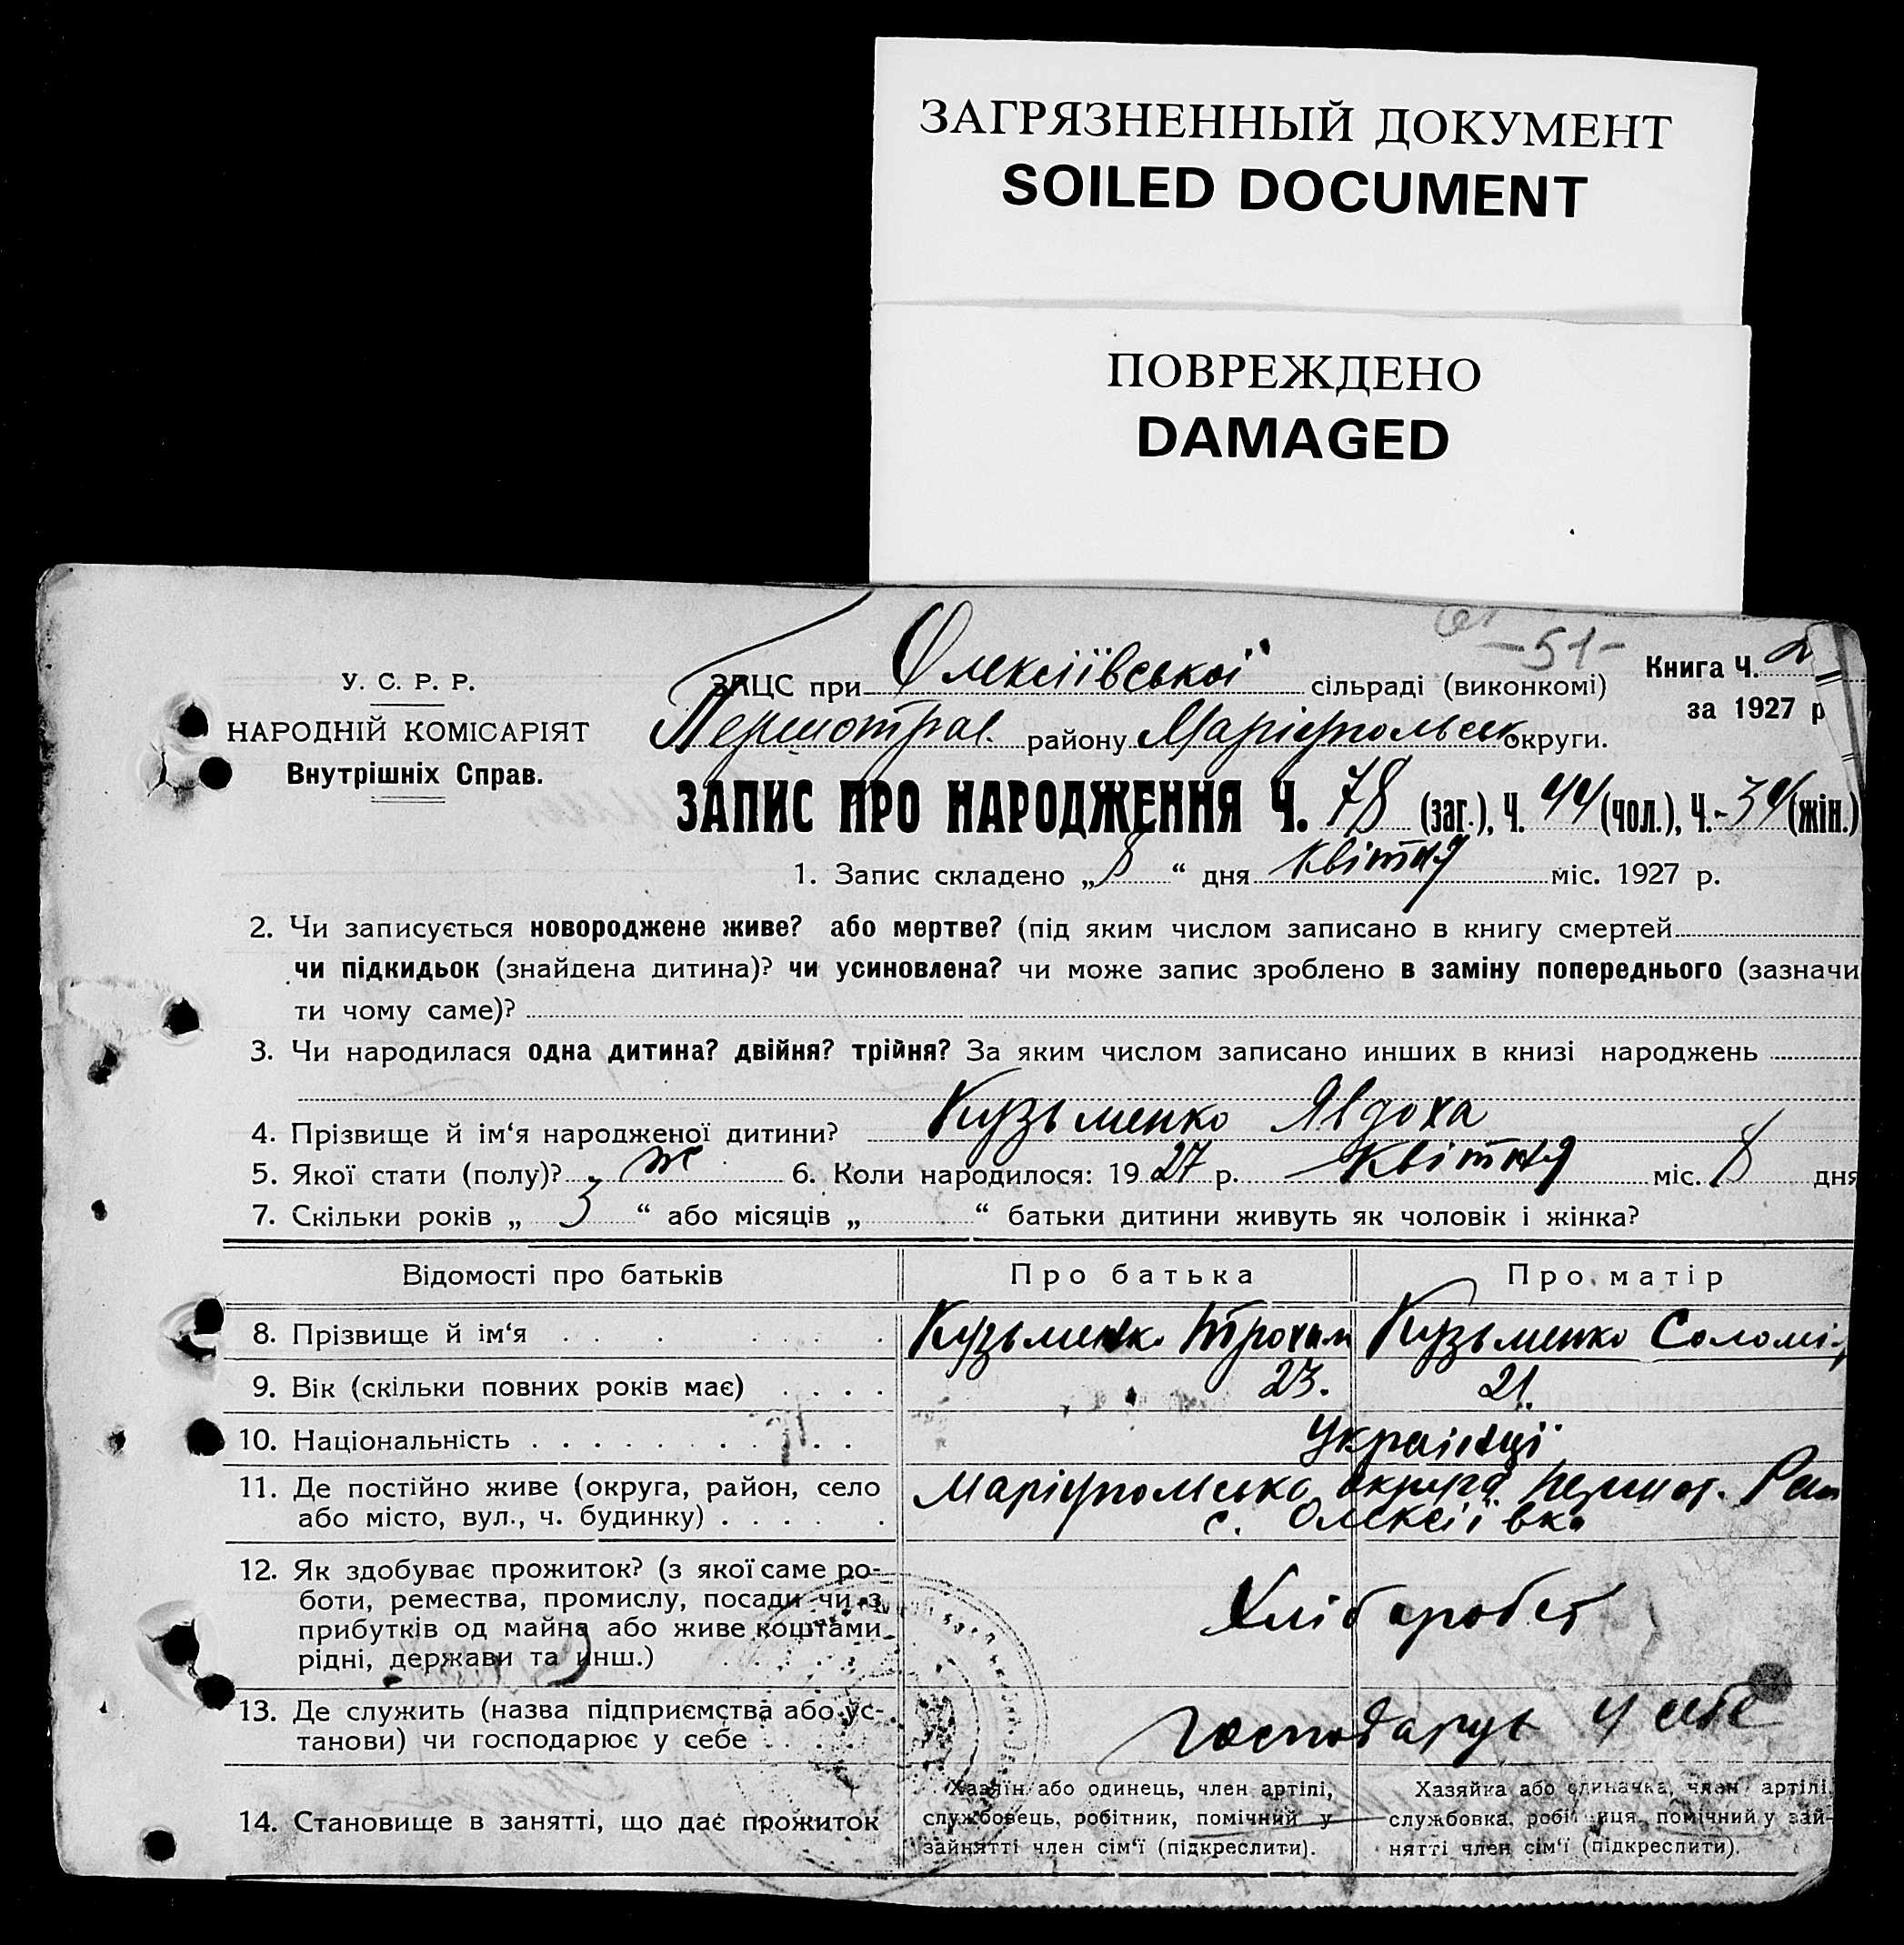 ЗАГРЯЗНЕННЫЙ ДОКУМЕНТ
SOILED DOCUMENT
ПОВРЕЖДЕНО
DAMAGED
-51-
У. С. Р. Р.
НАРОДНІЙ КОМІСАРІЯТ
Внутрішніх Справ.
ЗАЦС при Олексіївської сільраді (виконкомі)
Книга Ч. 2
за 1927 р
Першотрав. району Маріупольськ округи.
ЗАПИС ПРО НАРОДЖЕННЯ Ч. 78 (заг.), Ч. 44 (чол.), Ч.-34 (жін.)
1. Запис складено „8“ дня Квітня міс. 1927 р.
2. Чи записується новороджене живе? або мертве? (під яким числом записано в книгу смертей
чи підкидьок (знайдена дитина)? чи усиновлена? чи може запис зроблено в заміну попереднього (зазначи
ти чому саме)?
3. Чи народилася одна дитина? двійня? трійня? За яким числом записано инших в книзі народжень
4. Прізвище й ім‘я народженої дитини? Кузьменко Явдоха
5. Якої стати (полу)? ж 6. Коли народилося: 1927 р. Квітня міс. 8 дня
7. Скільки років „ 3 “ або місяців „ “ батьки дитини живуть як чоловік і жінка?
Відомості про батьків Про батька Про матір
8. Прізвище й ім‘я Кузьменко Трохим Кузьменко Соломі
9. Вік (скільки повних років має) 23. 21.
10. Національність Українці
11. Де постійно живе (округа, район, село Маріупольсько округа Першот. Рай
або місто, вул., ч. будинку) с. Олексіївка
12. Як здобуває прожиток? (з якої саме ро-
боти, ремества, промислу, посади чи з Хлібороб
прибутків од майна або живе коштами
рідні, держави та инш.)
13. Де служить (назва підприємства або ус- господарує у себе
танови) чи господарює у себе
14. Становище в занятті, що дає прожиток
Хазяїн або одинець, член артілі,
службовець, робітник, помічний у
зайнятті член сім‘ї (підкреслити).
Хазяйка або одиначка, член артілі,
службовка, робітниця, помічний у зай-
нятті член сім‘ї (підкреслити).